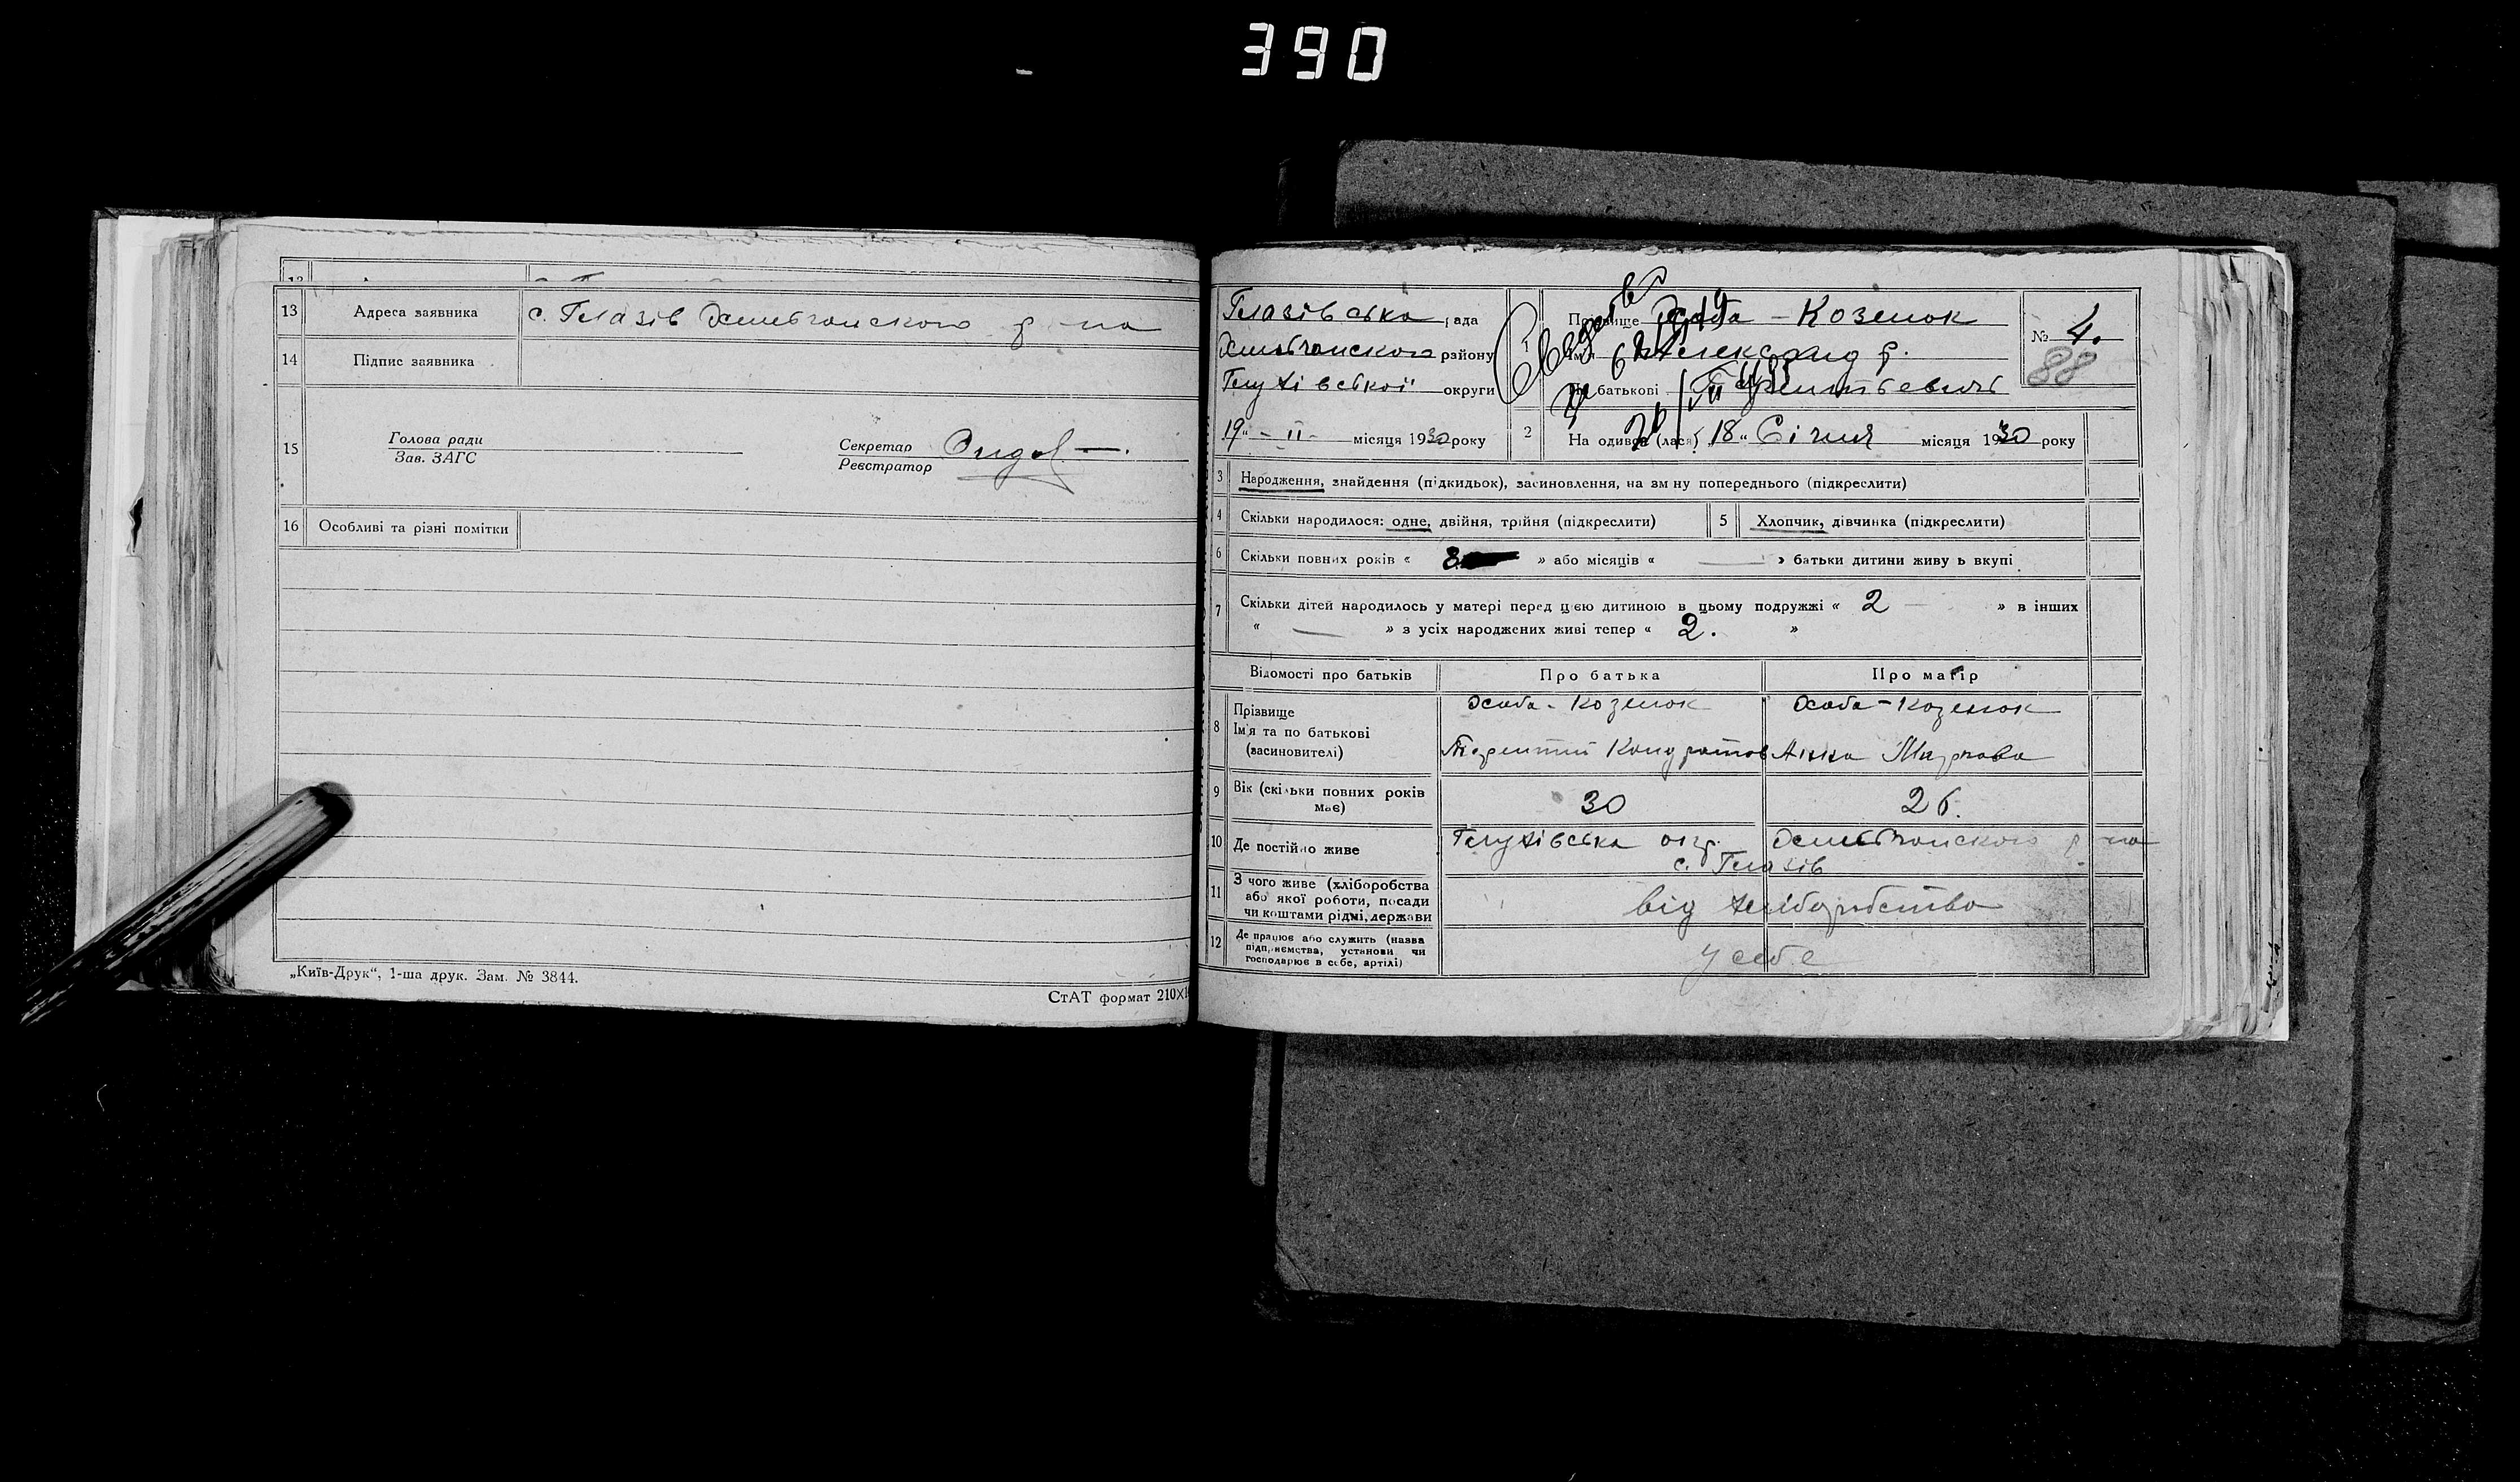 390
13 Адреса заявника с. Глазів Хильчанского р-на
14 Підпис заявника
15 Голова ради
Зав. ЗАГС
Секретар
Реєстратор
16 Особливі та різні помітки
„Київ-Друк“, 1-ша друк. Зам. № 3844.
СтАТ формат 210X1
Глазівська рада
Хильчанского району
Глухівської округи
19 " - II - місяця 1930 року
1 Прізвище Хаба - Козенок
Ім'я Александр.
По батькові Терентьевичь
№ 4.
88
2 На одився (лася) „18" Січня місяця 1930 року
3 Народження, знайдення (підкидьок), засиновлення, на зм ну попереднього (підкреслити)
4 Скільки народилося: одне, двійня, трійня (підкреслити) 5 Хлопчик, дівчинка (підкреслити)
6 Скільки повних років « 8 » або місяців « — » батьки дитини живу ь вкупі
7 Скільки дітей народилось у матері перед цією дитиною в цьому подружжі « 2 » в інших
« — » з усіх народжених живі тепер « 2. »
Відомості про батьків Про батька Про матір
8 Прізвище Хаба - Козенок Хаба - Козенок
Ім'я та по батькові
(засиновителі) Терентий Кондратов Анна Маркова
9 Вік (скільки повних років має) 30 26.
10 Де постійно живе Глухівська окр. Хильчанского р-на
с. Глазів
11 З чого живе (хліборобства
або якої роботи, посади
чи коштами рідмі, держави від хліборобства
12 Де працює або служить (назва
підприємства, установи чи
господарює в себе, артілі) у себе